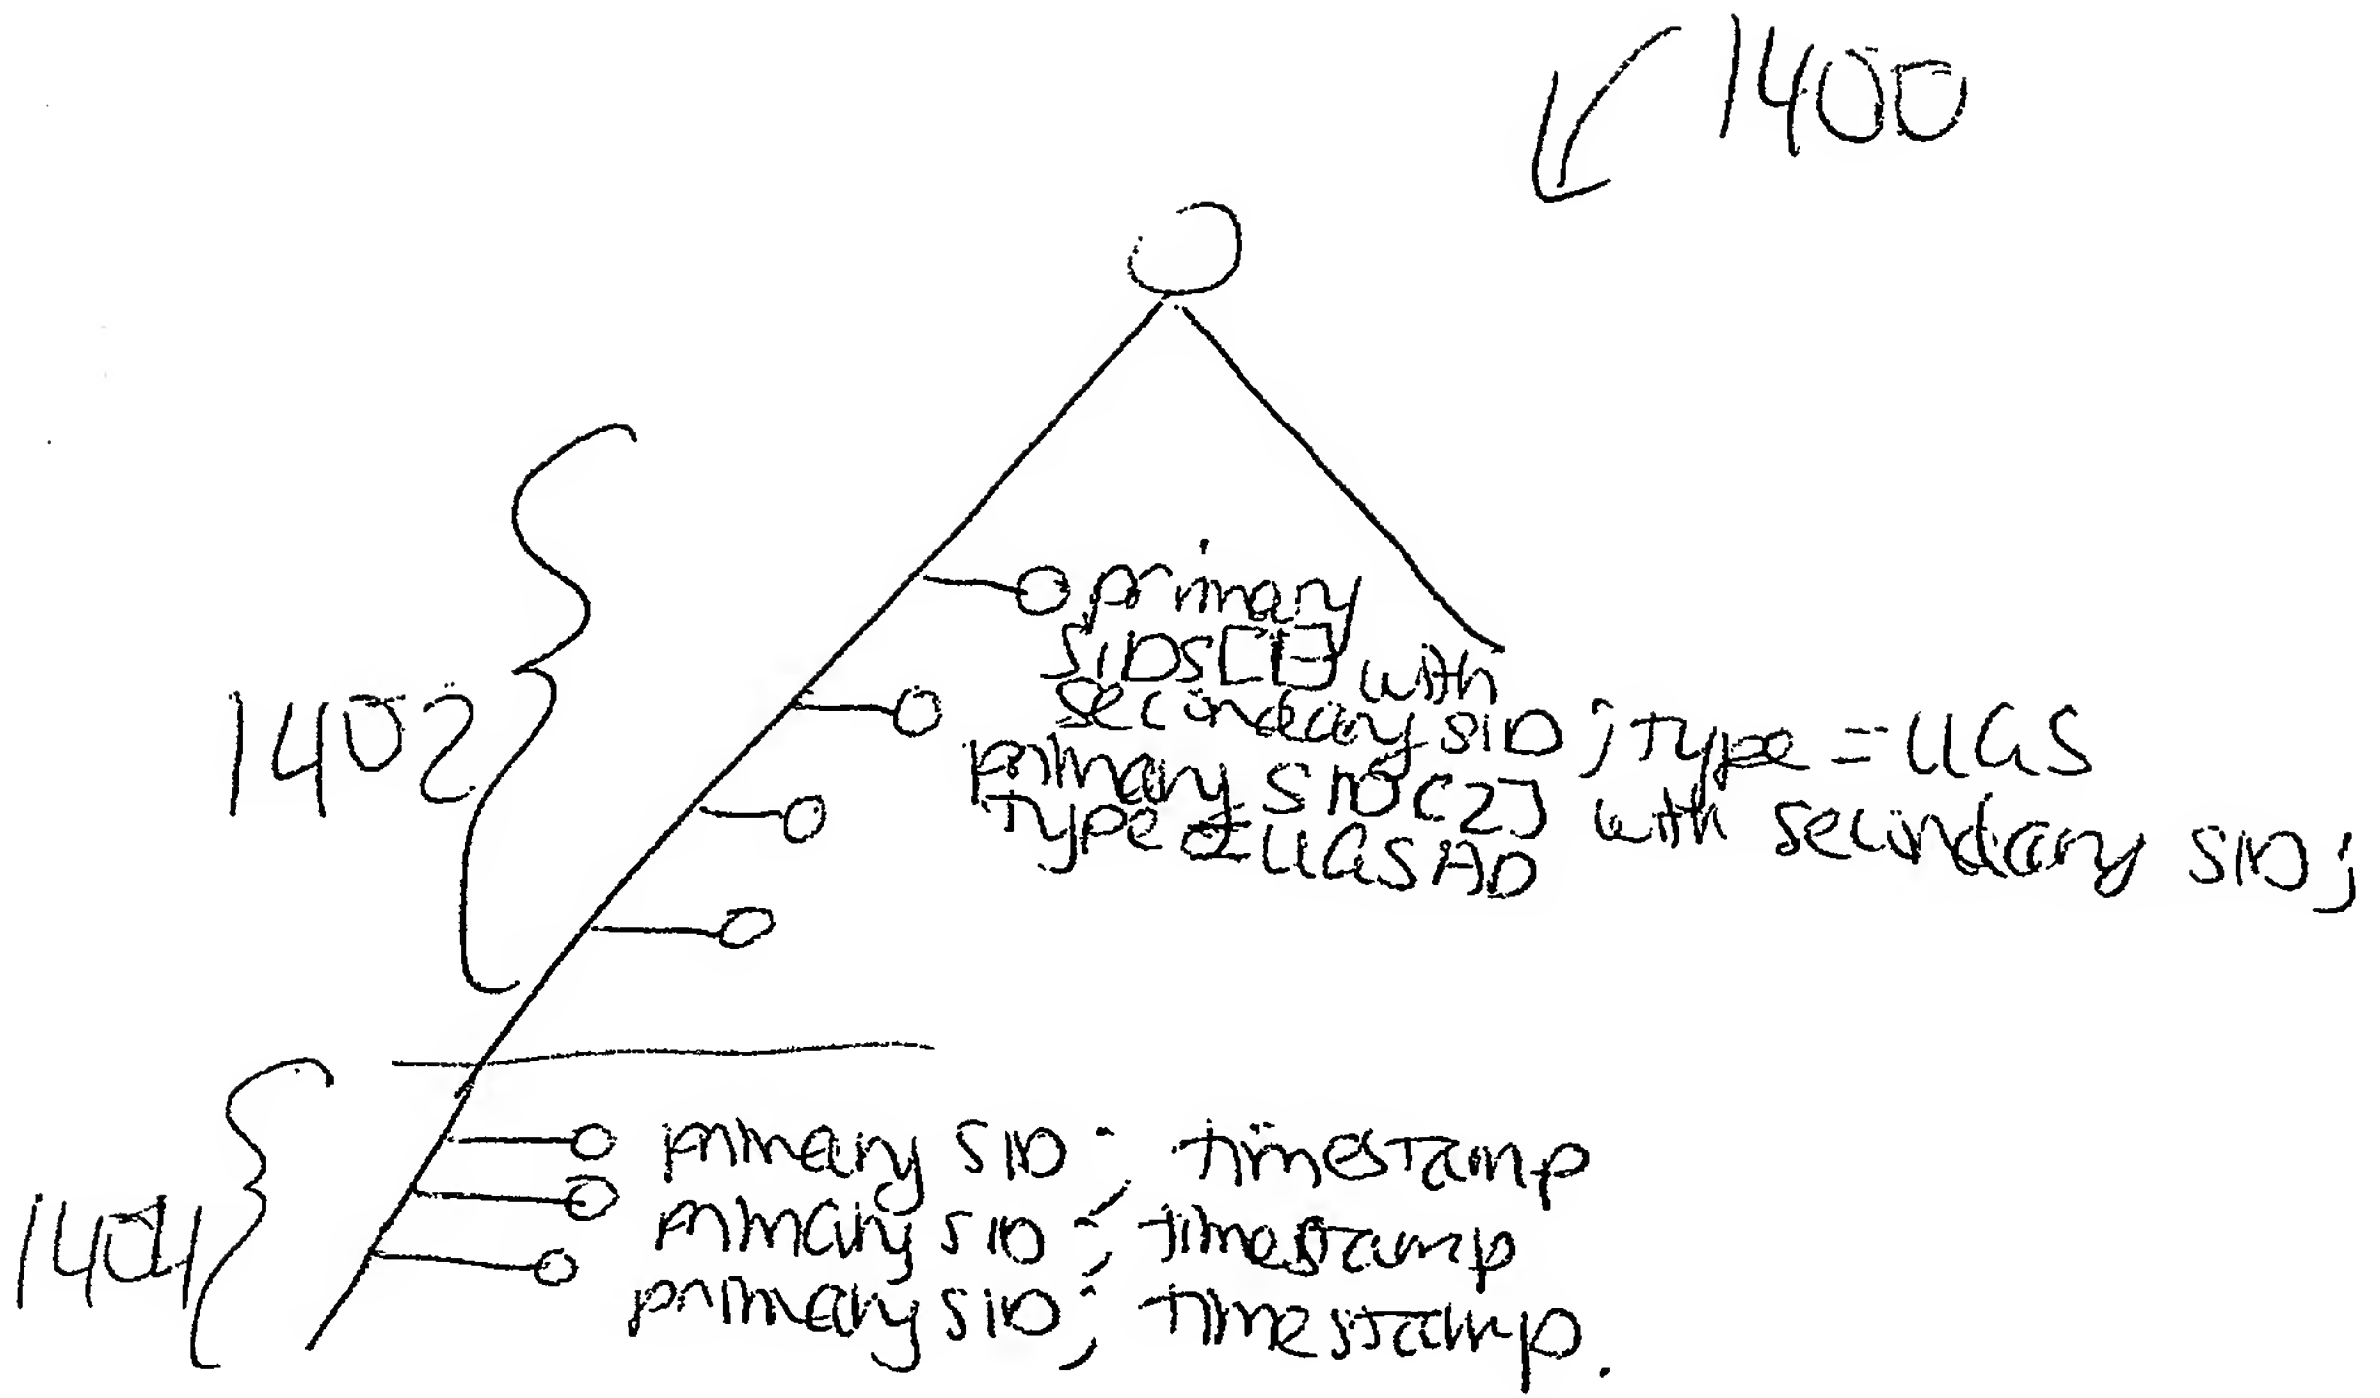 1400
primary
SIDS[1] with
secondary SID; Type = UGS
primary SID[2] with secondary SID;
Type = UGSAD
1402
primary SID; timestamp
primary SID; timestamp
primary SID; timestamp.
1404